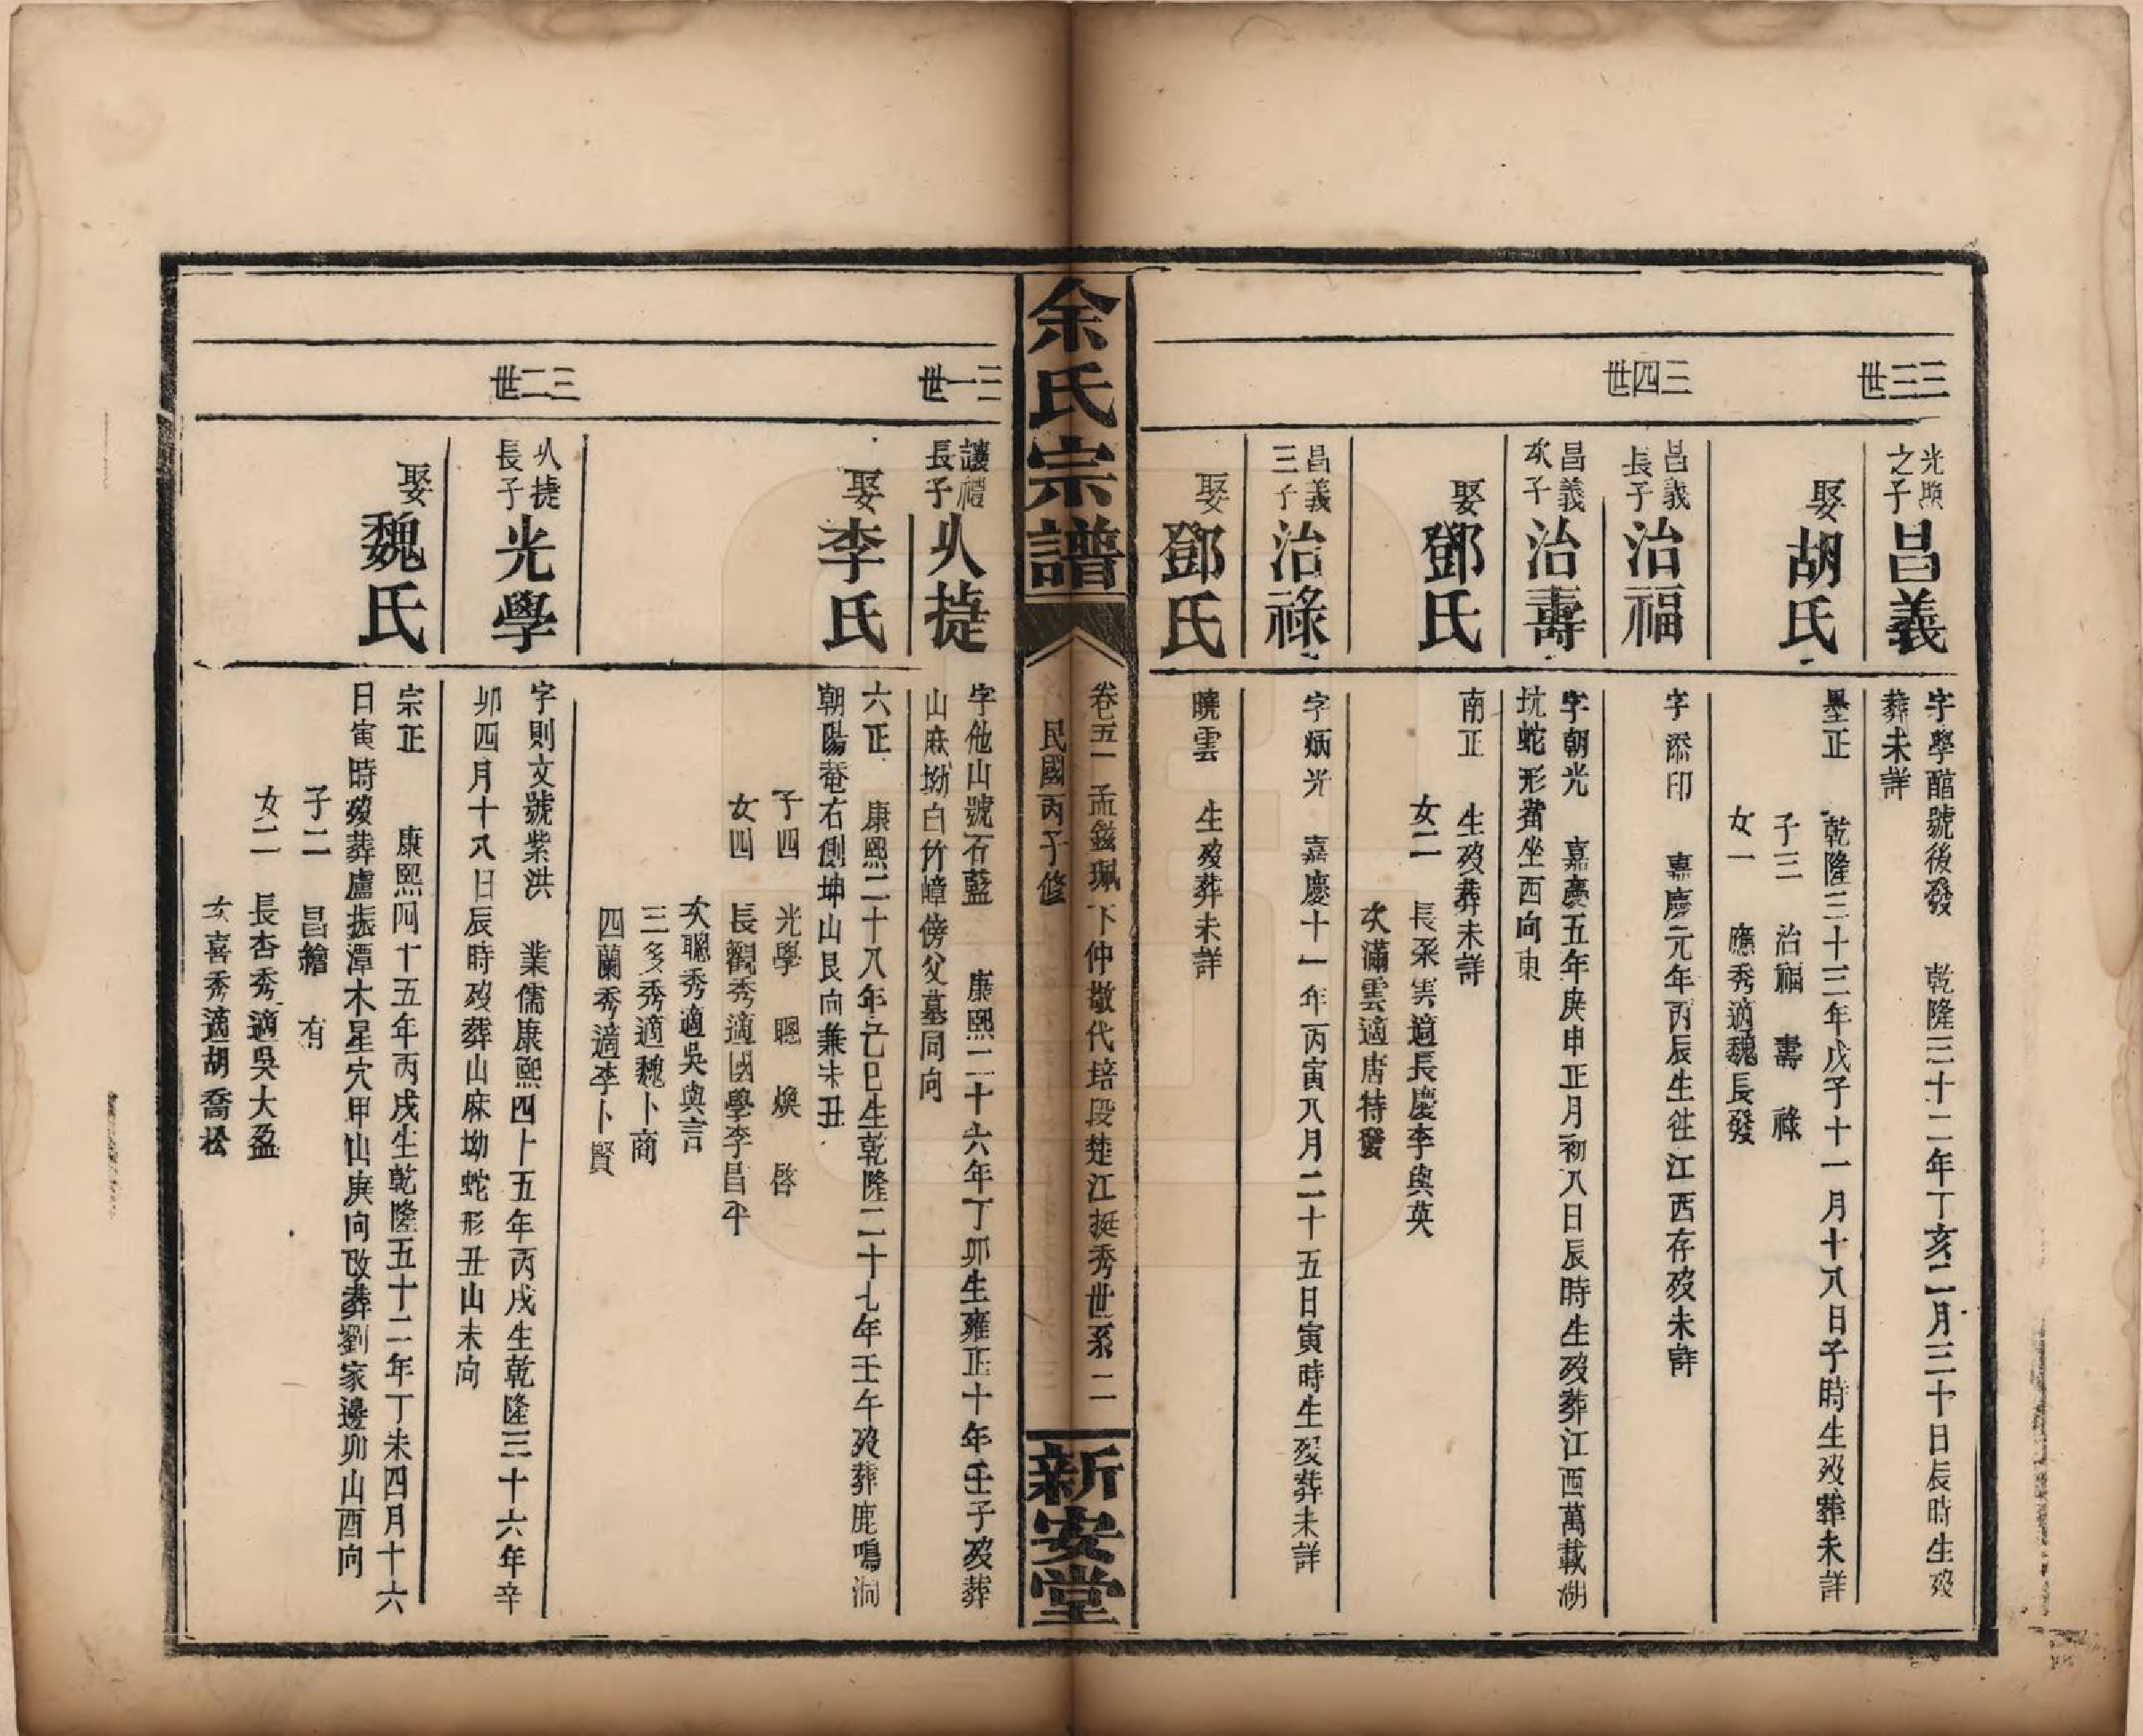 三三世
光照之子
昌義
字學醅號後發　乾隆三十二年丁亥二月三十日辰時生歿
葬未詳
娶胡氏
墨正　乾隆三十三年戊子十一月十八日子時生歿葬未詳
子三　治福　壽　祿
女一　應秀適魏長發
三四世
昌義長子
治福
字添印　嘉慶元年丙辰生徃江西存歿未詳
昌義次子
治壽
字朝光　嘉慶五年庚申正月初八日辰時生歿葬江西萬載湖
坑蛇形嘴坐西向東
娶鄧氏
南正　生歿葬未詳
女二　長采雲適長慶李與英
次滿雲適唐特發
昌義三子
治祿
字炳光　嘉慶十一年丙寅八月二十五日寅時生歿葬未詳
娶鄧氏
曉雲　生歿葬未詳
余氏宗譜
卷五一孟鎡珮下仲敬代培段楚江挺秀世系　二
民國丙子修
新安堂
三一世
讓禮長子
㕥捷
字他山號石藍　康熙二十六年丁卯生雍正十年壬子歿葬
山麻坳白竹嶂傍父墓同向
娶李氏
六正　康熙二十八年己巳生乾隆二十七年壬午歿葬鹿鳴洞
朝陽菴右側坤山艮向兼未丑
子四　光學　聰　煥　啓
女四　長觀秀適國學李昌平
次聰秀適吳與言
三多秀適魏卜商
四蘭秀適李卜賢
三二世
㕥捷長子
光學
字則文號紫洪　業儒康熙四十五年丙戌生乾隆三十六年辛
卯四月十八日辰時歿葬山麻坳蛇形丑山未向
娶魏氏
宗正　康熙四十五年丙戌生乾隆五十二年丁未四月十六
日寅時歿葬盧振潭木星穴甲山庚向改葬劉家邊卯山酉向
子二　昌繪　有
女二　長杏秀適吳大盈
次喜秀適胡喬松